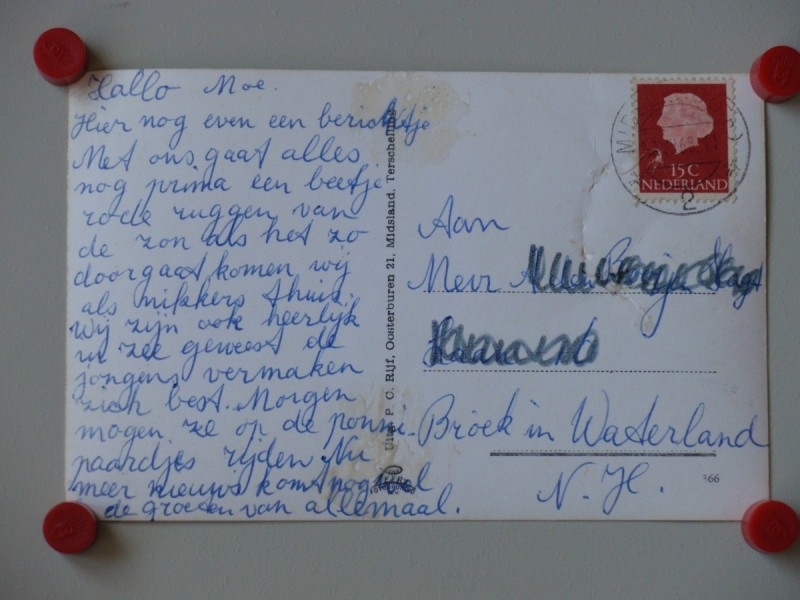 Hallo Moe.
Hier nog even een berichtje
Met ons gaat alles
nog prima een beetje
rode ruggen van
de zon als het zo
doorgaat komen wij
als nikkers thuis.
Wij zijn ook heerlijk
in zee geweest de
jongens vermaken
zich best. Morgen
mogen ze op de ponni-
paardjes rijden Nu
meer nieuws komt nog wel
de groeten van allemaal.
Uitg. P. C. Rijf, Oosterburen 21, Midsland, Terschelling
15C
NEDERLAND
2
Aan
Mevr
Broek in Waterland
N. H.
366